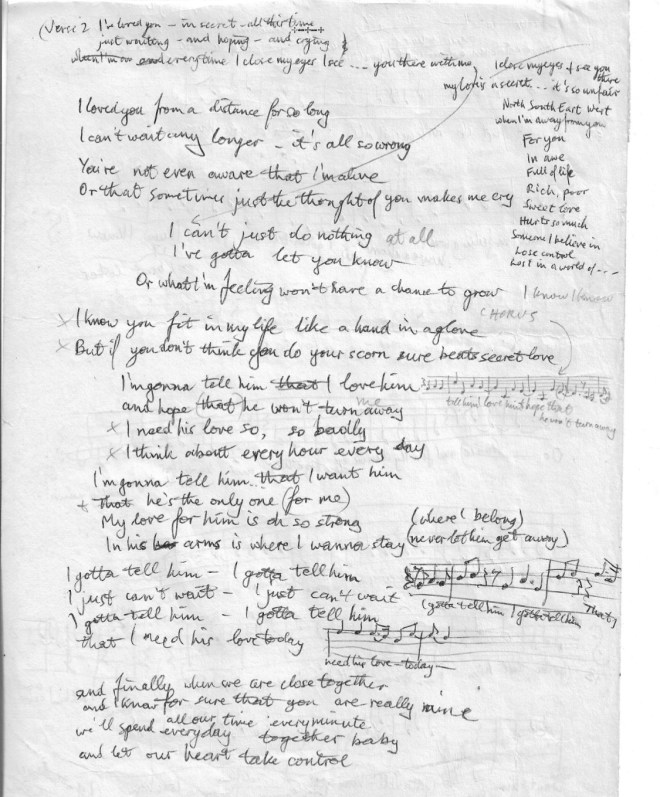 (Verse 2 I've loved you - in secret - all this time
just waiting - and hoping - and crying
when I'm on and everytime I close my eyes I see ... you there with me
I close my eyes & see you there
my love is a secret ... it's so unfair
North South East West
when I'm away from you
For you
In awe
Full of life
Rich, poor
Sweet love
Hurts so much
Someone I believe in
Lose control
Lost in a world of - - -
I loved you from a distance for so long
I can't wait any longer - it's all so wrong
You're not even aware that I'm alive
Or that sometimes just the thought of you makes me cry
I can't just do nothing at all
I've gotta let you know
Or what I'm feeling won't have a chance to grow
I know I know
CHORUS
x I know you fit in my life like a hand in a glove
x But if you don't think you do your scorn sure beats secret love
I'm gonna tell him that I love him
tell him I love him & hope that
he won't turn away
and hope that he won't turn away
me
x I need his love so, so badly
x I think about every hour every day
I'm gonna tell him that I want him
x That he's the only one (for me)
My love for him is oh so strong (where I belong)
In his arms is where I wanna stay (never let him get away)
I gotta tell him - I gotta tell him
I just can't wait - I just can't wait
I gotta tell him - I gotta tell him
I gotta tell him I gotta tell him That
that I need his love today
need his love - today -
and finally when we are close together
and I know for sure that you are really mine
we'll spend all our time every minute
everyday together baby
and let our heart take control